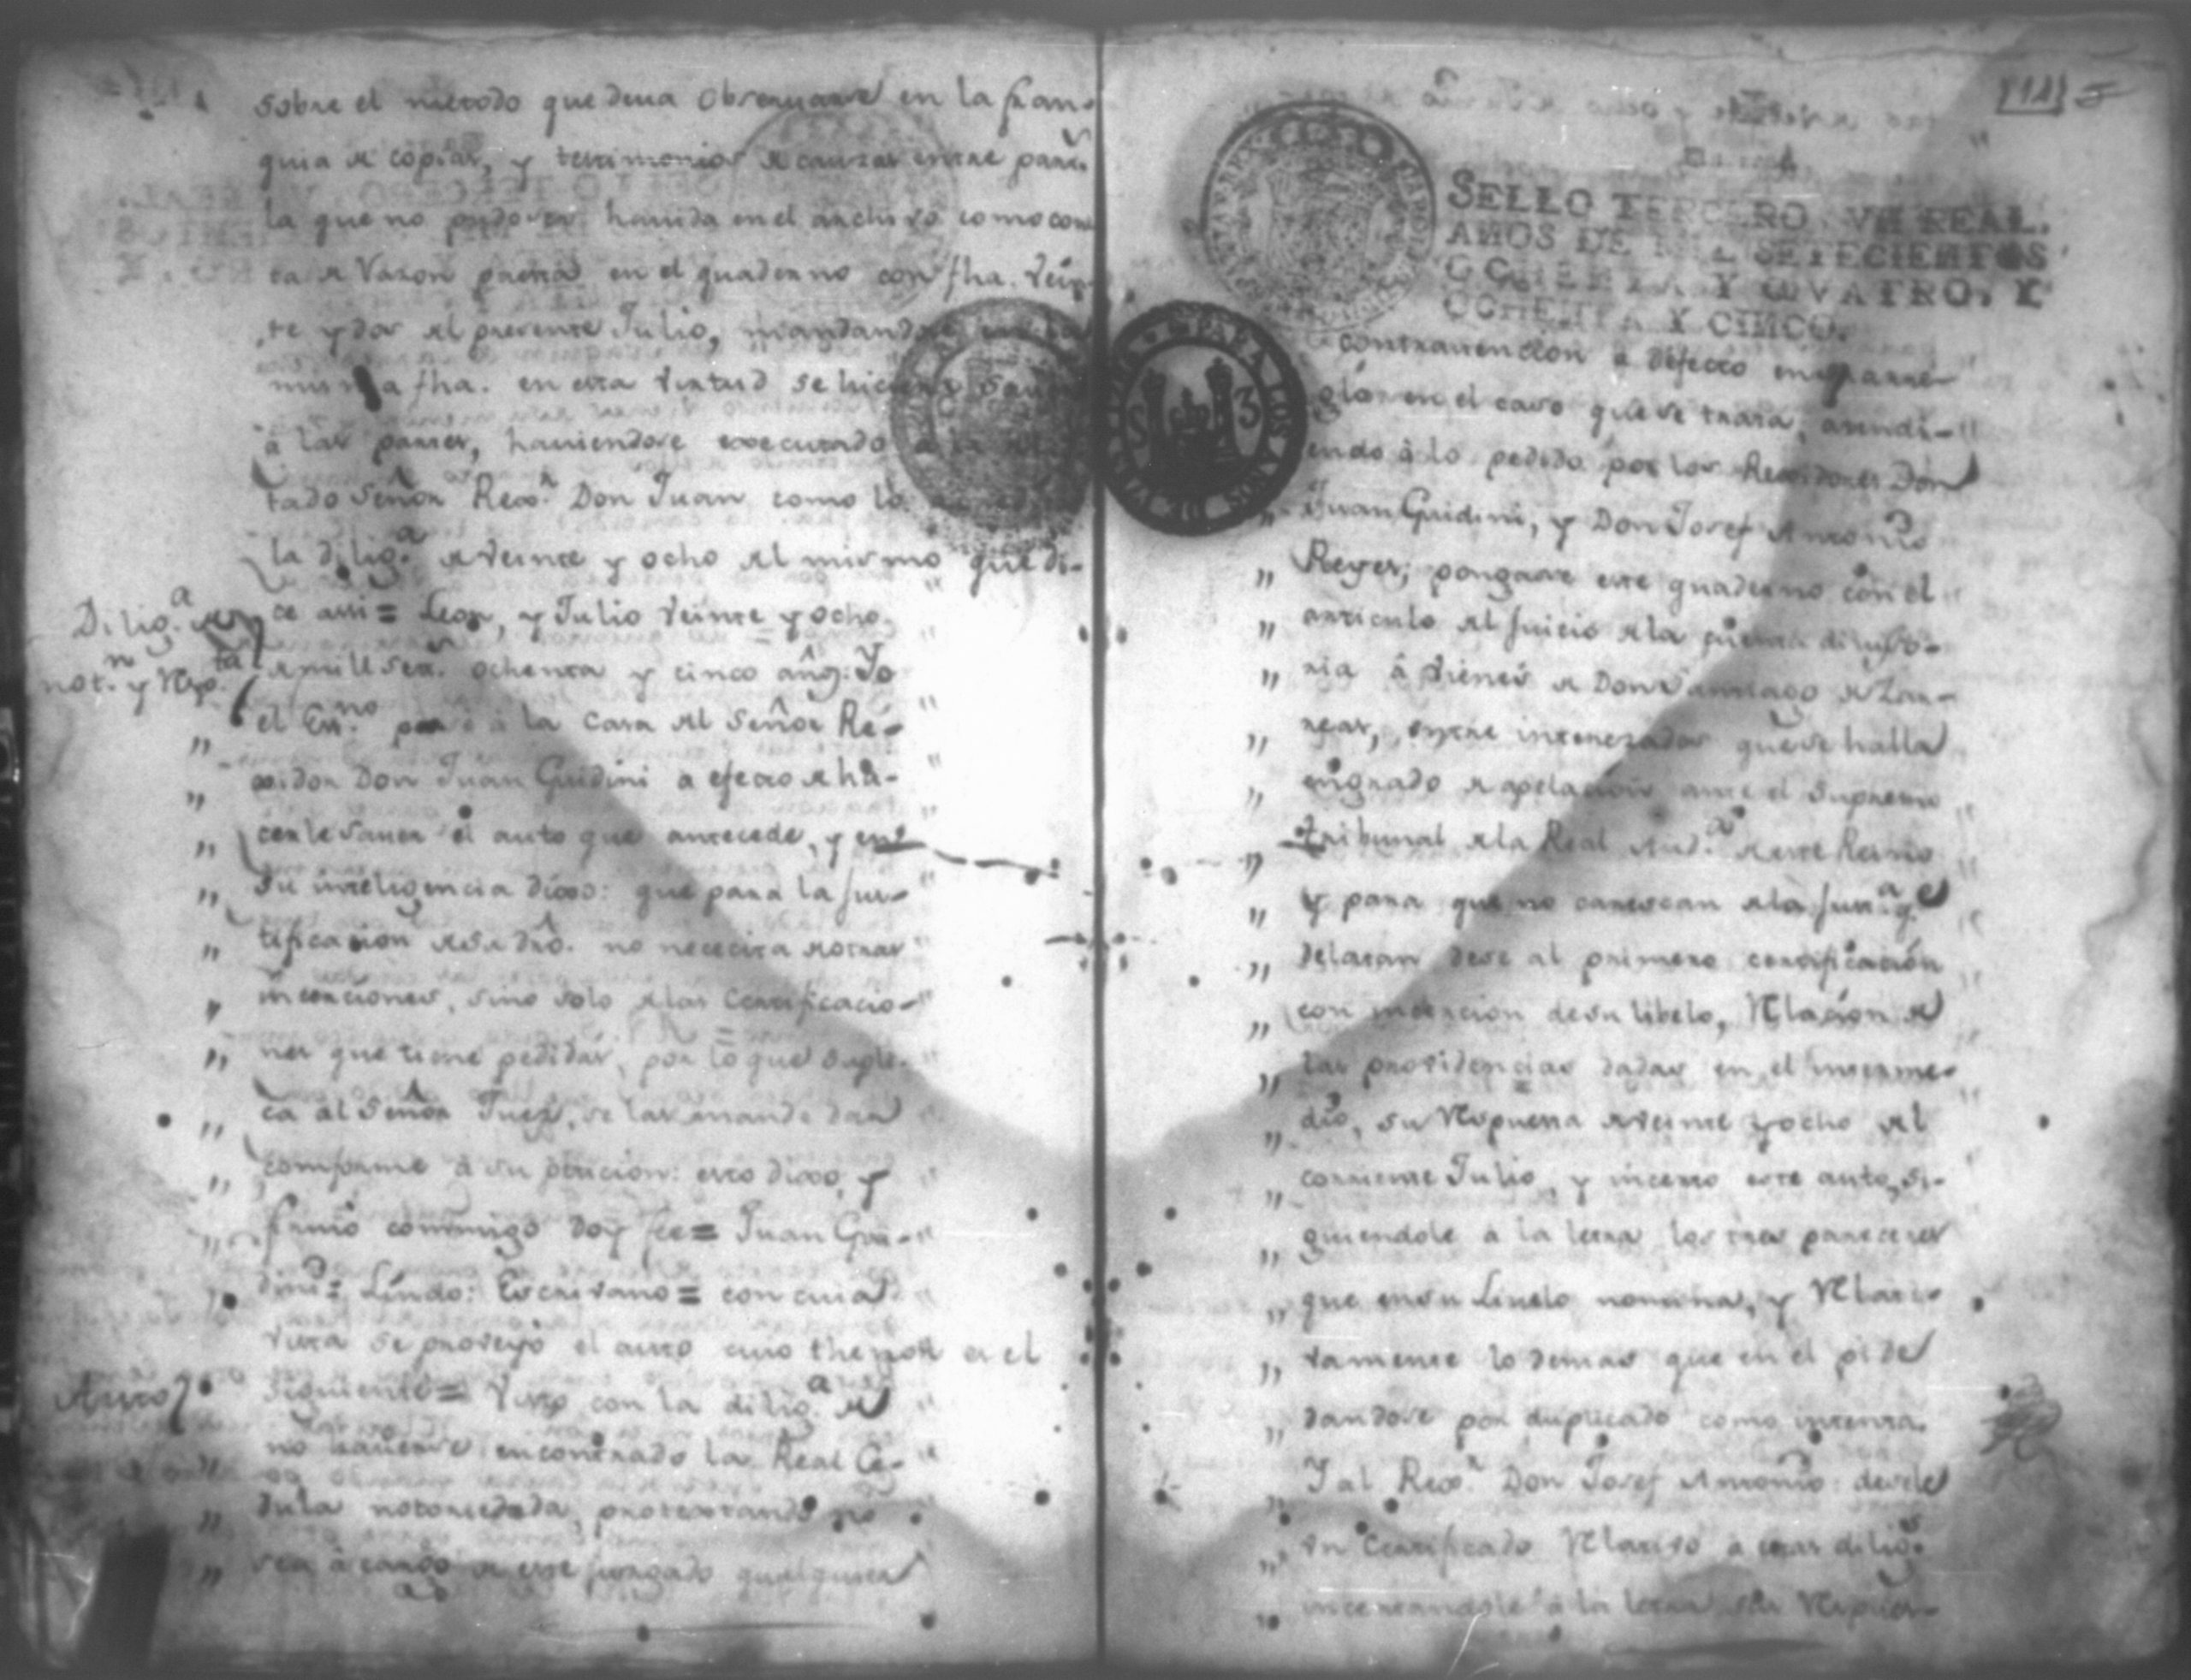 sobre el metodo que deva observarse en la fran-
quia de copias, y testimonios de causas entre partes.
la que no pudo ser havida en el archivo como cons-
ta de razon puesta en el quaderno con fha. Vein-
te y dos del presente Julio, mandandose en la
misma fha. en esta virtud se hiciera saver
a las partes, haviendose executado a la
tado Señor Rexor. Don Juan como lo
la dilig.a de veinte y ocho del mismo que di-
Dilig.a de
not.n y Resp.ta
ce assi = Leon, y Julio Veinte y ocho
de mill Set.s ochenta y cinco añõs: Yo
el Ess.no pasé à la Casa del Señor Re-
xidor Don Juan Guidini a efecto de ha-
cerle saver el auto que antecede, y en
su inteligencia dixo: que para la jus-
tificacion de su dró. no nececita de otras
incerciones, sino solo de las Certificacio-
nes que tiene pedidas, por lo que supli-
ca al Señor Juez, se las mande dar
comforme â su peticion: esto dixo, y
firmó commigo doy fee = Juan Gui-
dini = Lindo: Escrivano = con cuia
vista se proveyó el auto cuio thenor es el
Auto
siguiente = Visto con la dilig.a de
no haverse encontrado la Real Ce-
dula notoriedada, protestando no
sea â cargo de este juzgado qualquiera
111
SELLO TERCERO, VN REAL,
AÑOS DE MIL SETECIENTOS
OCHENTA Y QVATRO, Y
OCHENTA Y CINCO.
PARA LOS
S 3
contravencion ô defecto en
glo en el caso que se trata, atendi-
endo à lo pedido por los Rexidores Don
Juan Guidini, y Don Josef Antonio
Reyes; pongase este quaderno con el
articulo del juicio de la quenta diviso-
ria â vienes de Don Santiago de Lan-
entre interezados que se halla
en grado de apelacion ante el Supremo
tribunal de la Real Aud.a de este Reino
y para que no carescan de la jus.a q.e
delatan dese al primero certificacion
con incercion de su libelo, Relacion de
las providencias dadas en el interme-
dio, su Respuesta de veinte y ocho del
corriente Julio, y incerto este auto, si-
guiendole â la letra los tres pareceres
que en su Livelo nomina, y Relati-
vamente lo demas que en el pide
dandose por duplicado como intenta.
Y al Rexor. Don Josef Antonio desele
un Certificado Relativo à estas dilig.s
incertandole â la letra su Respues-